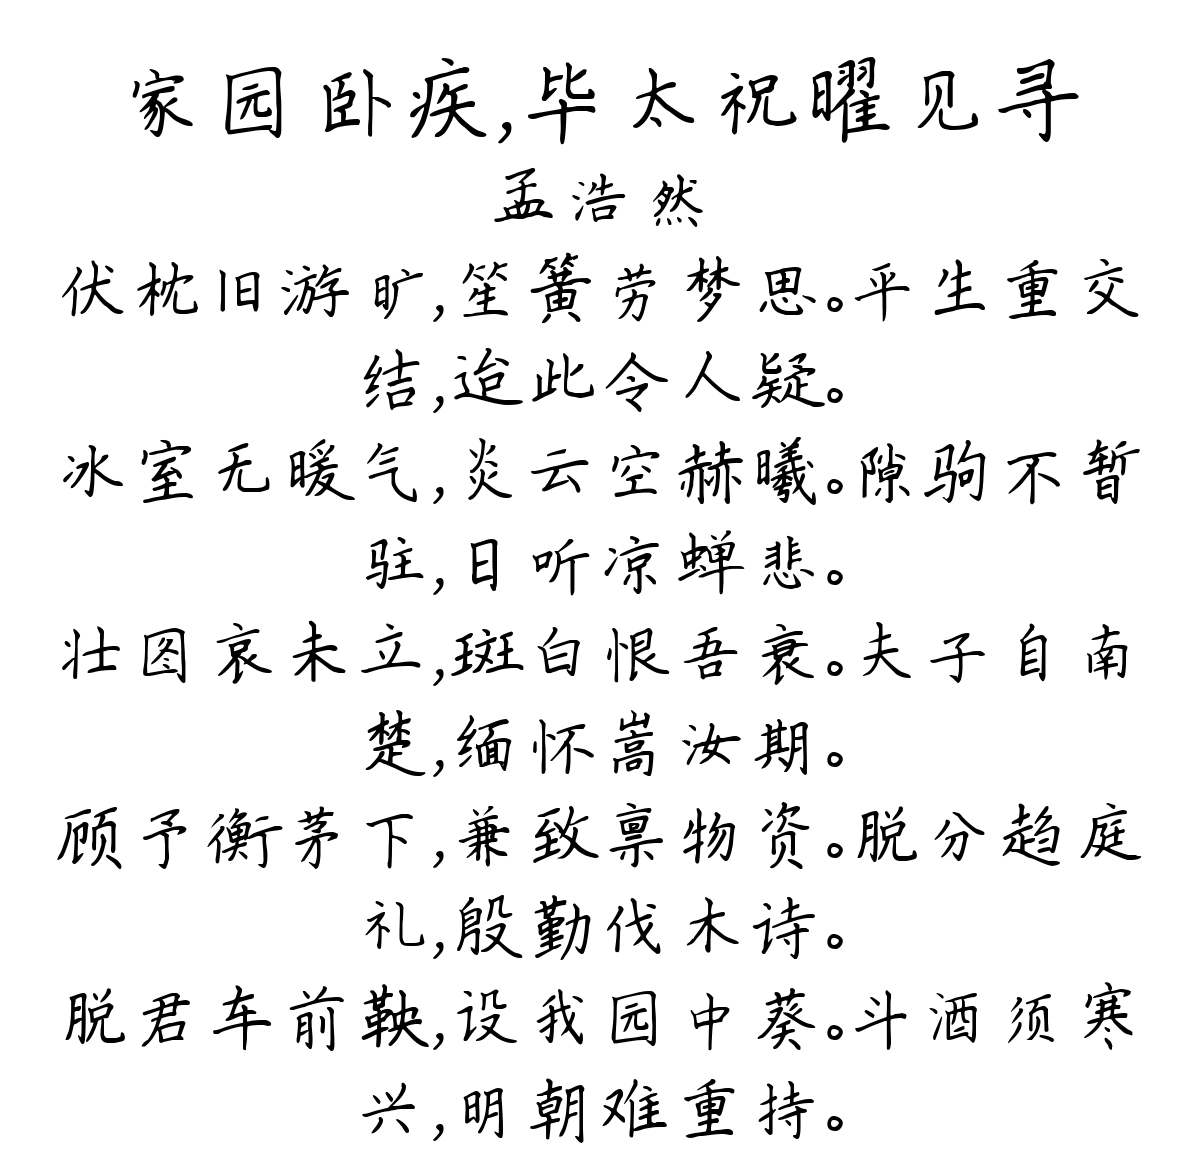 家园卧疾,毕太祝曜见寻
孟浩然
伏枕旧游旷,笙簧劳梦思。平生重交
结,迨此令人疑。
冰室无暖气,炎云空赫曦。隙驹不暂
驻,日听凉蝉悲。
壮图哀未立,斑白恨吾衰。夫子自南
楚,缅怀嵩汝期。
顾予衡茅下,兼致禀物资。脱分趋庭
礼,殷勤伐木诗。
脱君车前鞅,设我园中葵。斗酒须寒
兴,明朝难重持。